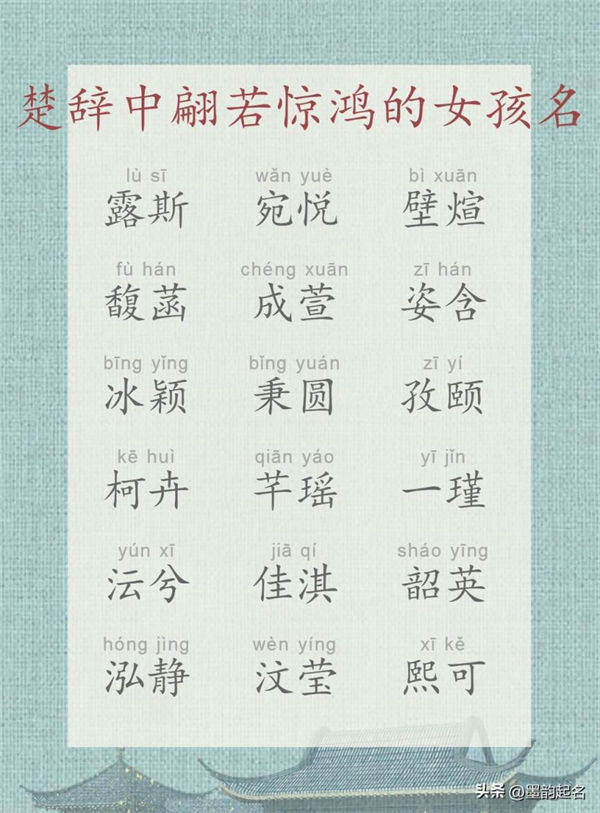 楚辞中翩若惊鸿的女孩名
lù sī wǎn yuè bì xuān
露斯 宛悦 壁煊
fù hán chéng xuān zī hán
馥菡 成萱 姿含
bīng yǐng bǐng yuán zī yí
冰颖 秉圆 孜颐
kē huì qiān yáo yī jǐn
柯卉 芊瑶 一瑾
yún xī jiā qí sháo yīng
沄兮 佳淇 韶英
hóng jìng wèn yíng xī kě
泓静 汶莹 熙可
头条 @墨韵起名